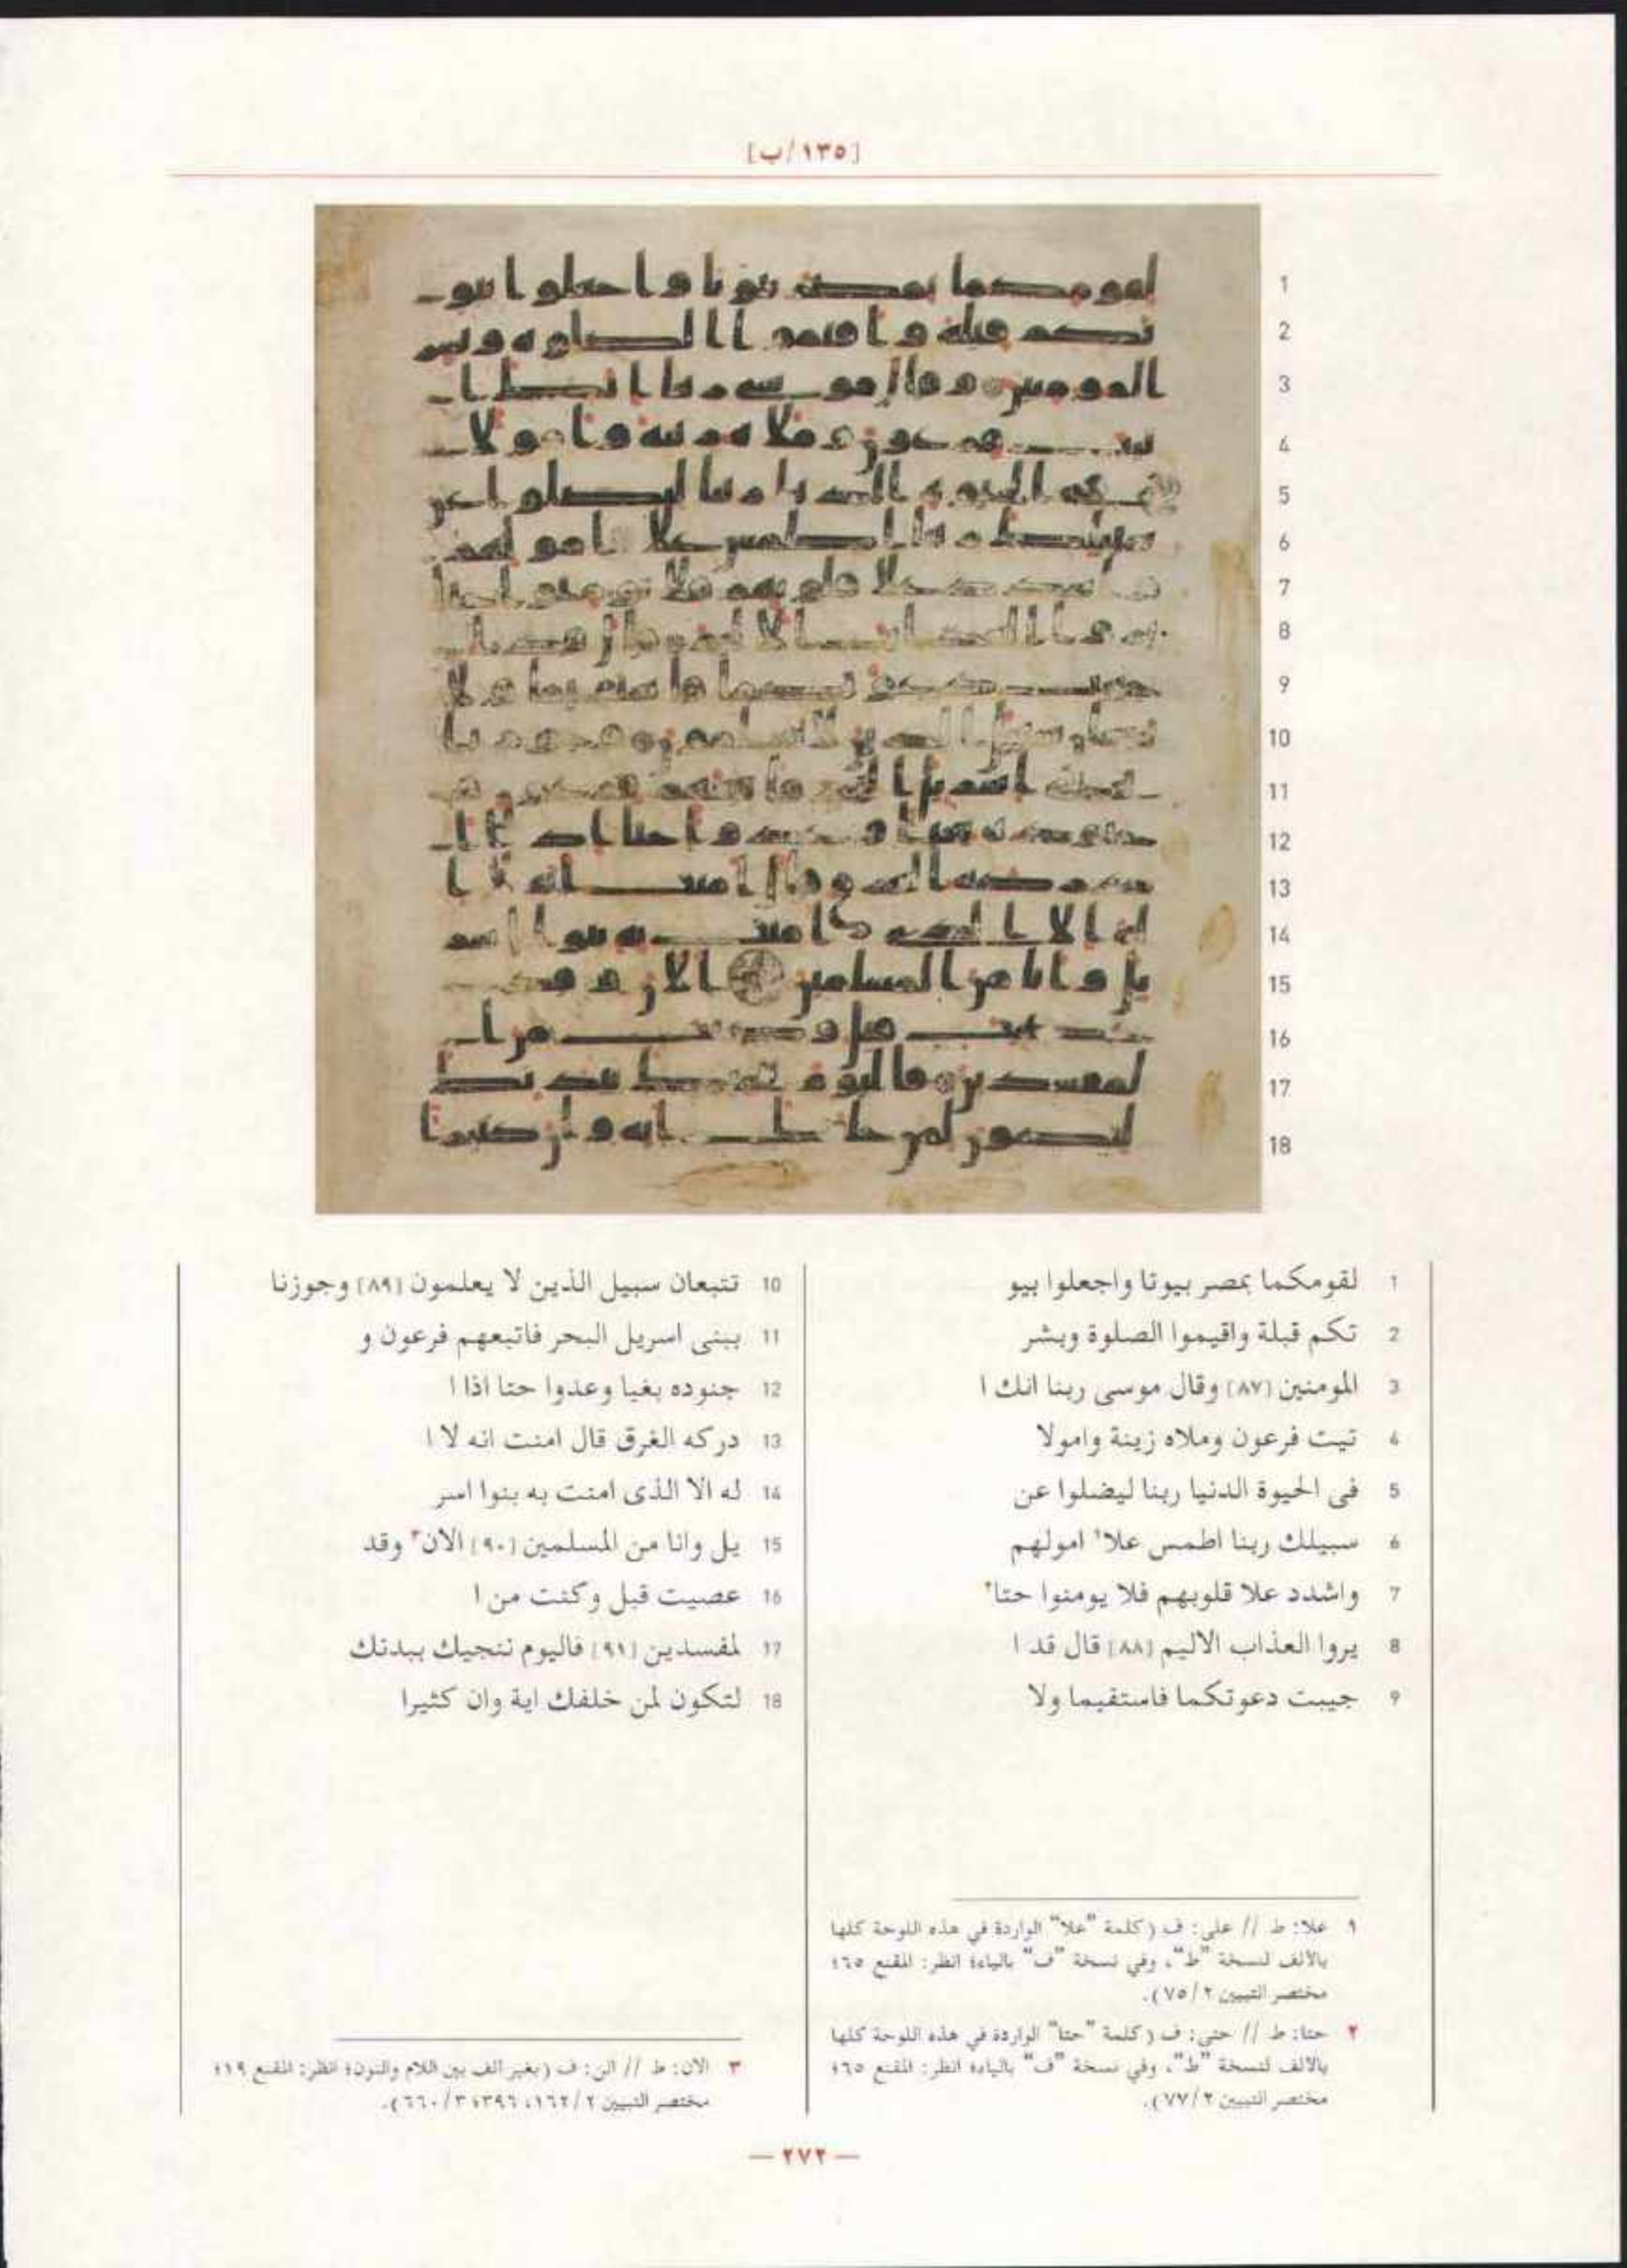 [١٣٥/ب]
1 لقومكما بمصر بيوتا واجعلوا بيو
2 تكم قبلة واقيموا الصلوة وبشر
3 المومنين [٨٧] وقال موسى ربنا انك ا
4 تيت فرعون وملاه زينة وامولا
5 فى الحيوة الدنيا ربنا ليضلوا عن
6 سبيلك ربنا اطمس علا١ امولهم
7 واشدد علا قلوبهم فلا يومنوا حتا٢
8 يروا العذاب الاليم [٨٨] قال قد ا
9 جيبت دعوتكما فاستقيما ولا
10 تتبعان سبيل الذين لا يعلمون [٨٩] وجوزنا
11 ببنى اسريل البحر فاتبعهم فرعون و
12 جنوده بغيا وعدوا حتا اذا ا
13 دركه الغرق قال امنت انه لا ا
14 له الا الذى امنت به بنوا اسر
15 يل وانا من المسلمين [٩٠] الان٣ وقد
16 عصيت قبل وكنت من ا
17 لمفسدين [٩١] فاليوم ننجيك ببدنك
18 لتكون لمن خلفك اية وان كثيرا
١ علا: ط // على: ف (كلمة "علا" الواردة في هذه اللوحة كلها
بالالف لنسخة "ط"، وفي نسخة "ف" بالياء؛ انظر: المقنع ٦٥؛
مختصر التبيين ٢/٧٥).
٢ حتا: ط // حتى: ف (كلمة "حتا" الواردة في هذه اللوحة كلها
بالالف لنسخة "ط"، وفي نسخة "ف" بالياء؛ انظر: المقنع ٦٥؛
مختصر التبيين ٢/٧٧).
٣ الان: ط // الن: ف (بغير الف بين اللام والنون؛ انظر: المقنع ١٩؛
مختصر التبيين ٢/١٦٢، ٣٩٦؛ ٣/٦٦٠).
— ٢٧٢ —